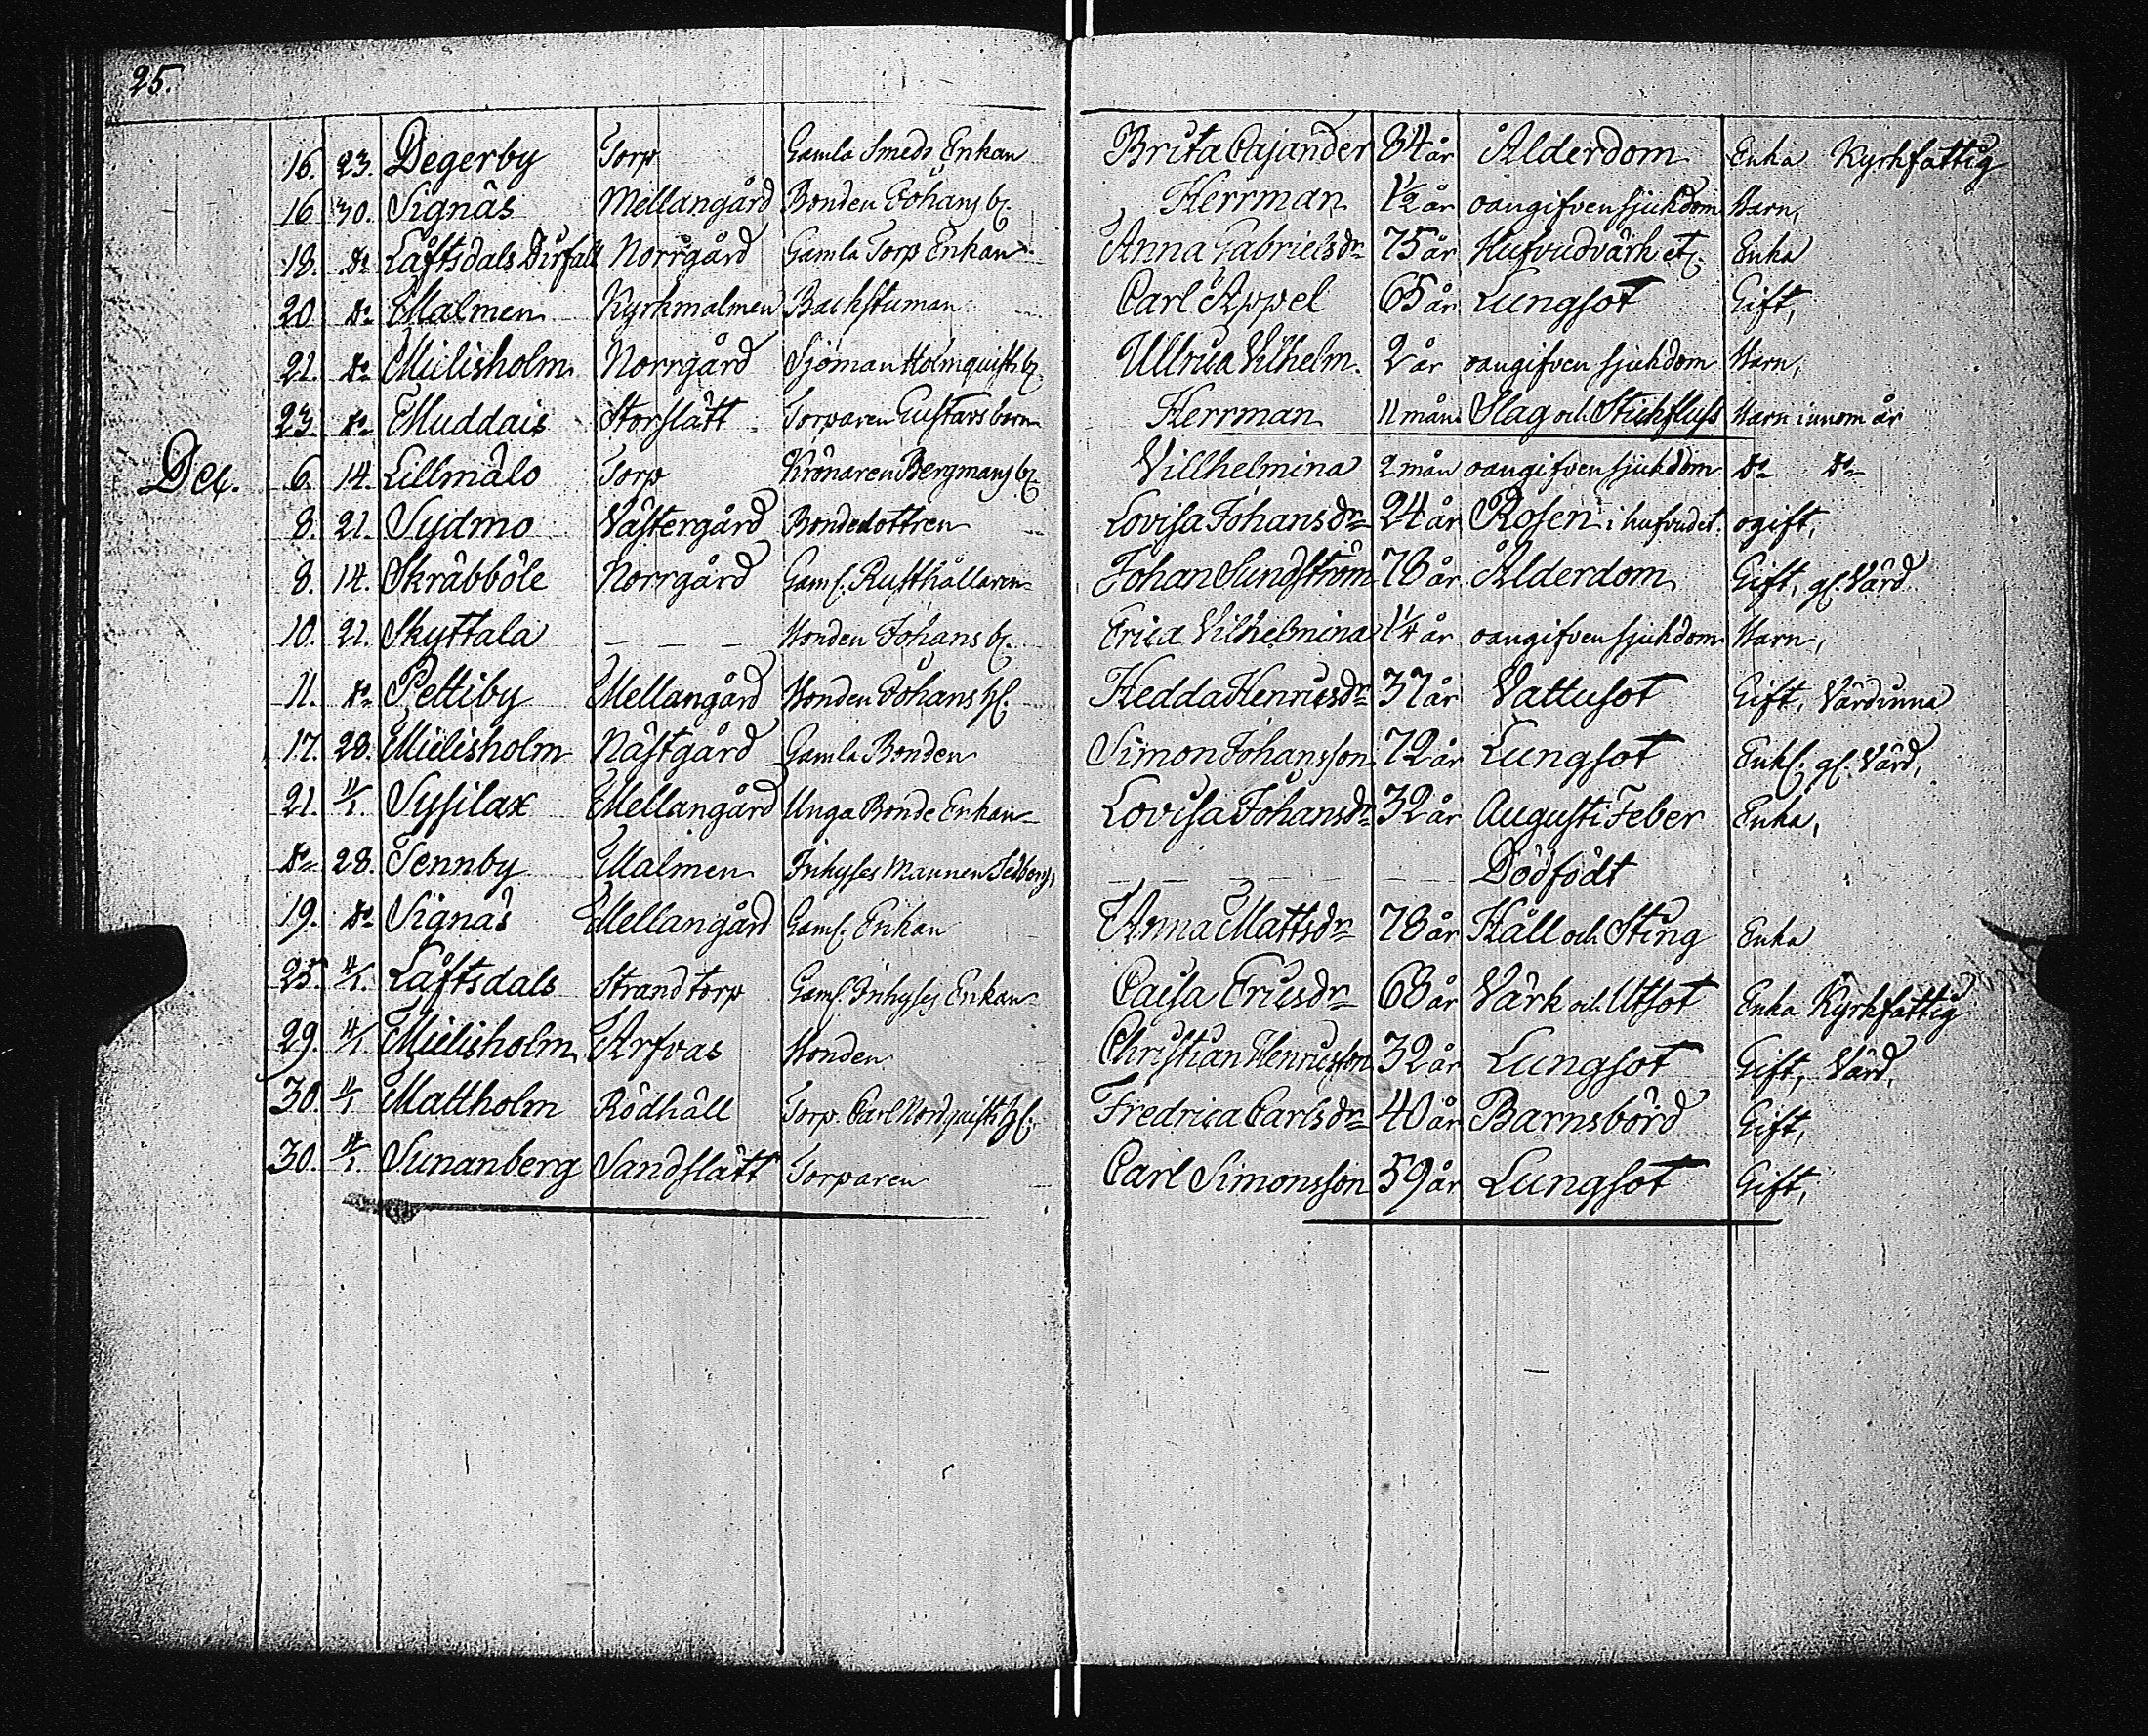 25.
16. 23. Degerby Torp Gamla Smeds Enkan Brita Cajander 84 år Ålderdom Enka Kyrkfattig
16 30. Signäs Mellangård Bonden Johans b. Herrman 1½ år oangifven sjukdom Barn,
18. Do Låftsdals Norrgård Gamla Torp Enkan Anna Gabrielsdr 75 år Hufvudvärk etc. Enka
20 Do Malmen Kyrkmalmen Backstuman Carl Appel 65 år Lungsot Gift,
21. Do Mielisholm Norrgård Sjöman Holmquists b. Ullrica Vilhelm. 2 år oangifven sjukdom Barn,
23. Do Muddais Storslätt Torparen Gustavs barn Herrman 11 mån Slag och Stickfluss Barn innom år
Dec. 6. 14. Lillmälo Torp Krönaren Bergmans b. Villhelmina 2 mån oangifven sjukdom Do Do
8. 21. Sydmo Västergård Bondedottren Lovisa Johansdr 24 år Rosen i hufvudet. ogift,
8. 14. Skräbböle Norrgård Gaml. Rusthållaren Johan Sundström 78 år Ålderdom Gift, gl. Värd
10. 21. Skyttala — — — Bonden Johans b. Erica Vilhelmina 1¼ år oangifven sjukdom Barn,
11. Do Pettiby Mellangård Bonden Johans h. Hedda Henricsdr 37 år Vattusot Gift, Värdinna
17. 28. Mielisholm Nästgård Gamla Bonden Simon Johansson 72 år Lungsot Enkl. gl. Värd,
21. 11/1. Sysilax Mellangård Unga Bonde Enkan Lovisa Johansdr 32 år Augusti Feber Enka,
Do 28. Tennby Malmen Inhyses Mannen — — — Dödfödt
19. Do Signäs Mellangård Gaml. Enkan Anna Mattsdr 78 år Håll och Sting Enka
25. 4/1. Låftsdals Strandtorp Gaml. Inhyses Enkan Caisa Ericsdr 68 år Värk och Utsot Enka Kyrkfattig
29. 4/1. Mielisholm Arfvas Bonden Christian Henricsson 32 år Lungsot Gift, Värd,
30. 11/1 Mattholm Rödhäll Torp. Carl Nordquists h. Fredrica Carlsdr 40 år Barnsbörd Gift,
30. 4/1. Sunanberg Sandslätt Torparen Carl Simonsson 59 år Lungsot Gift,